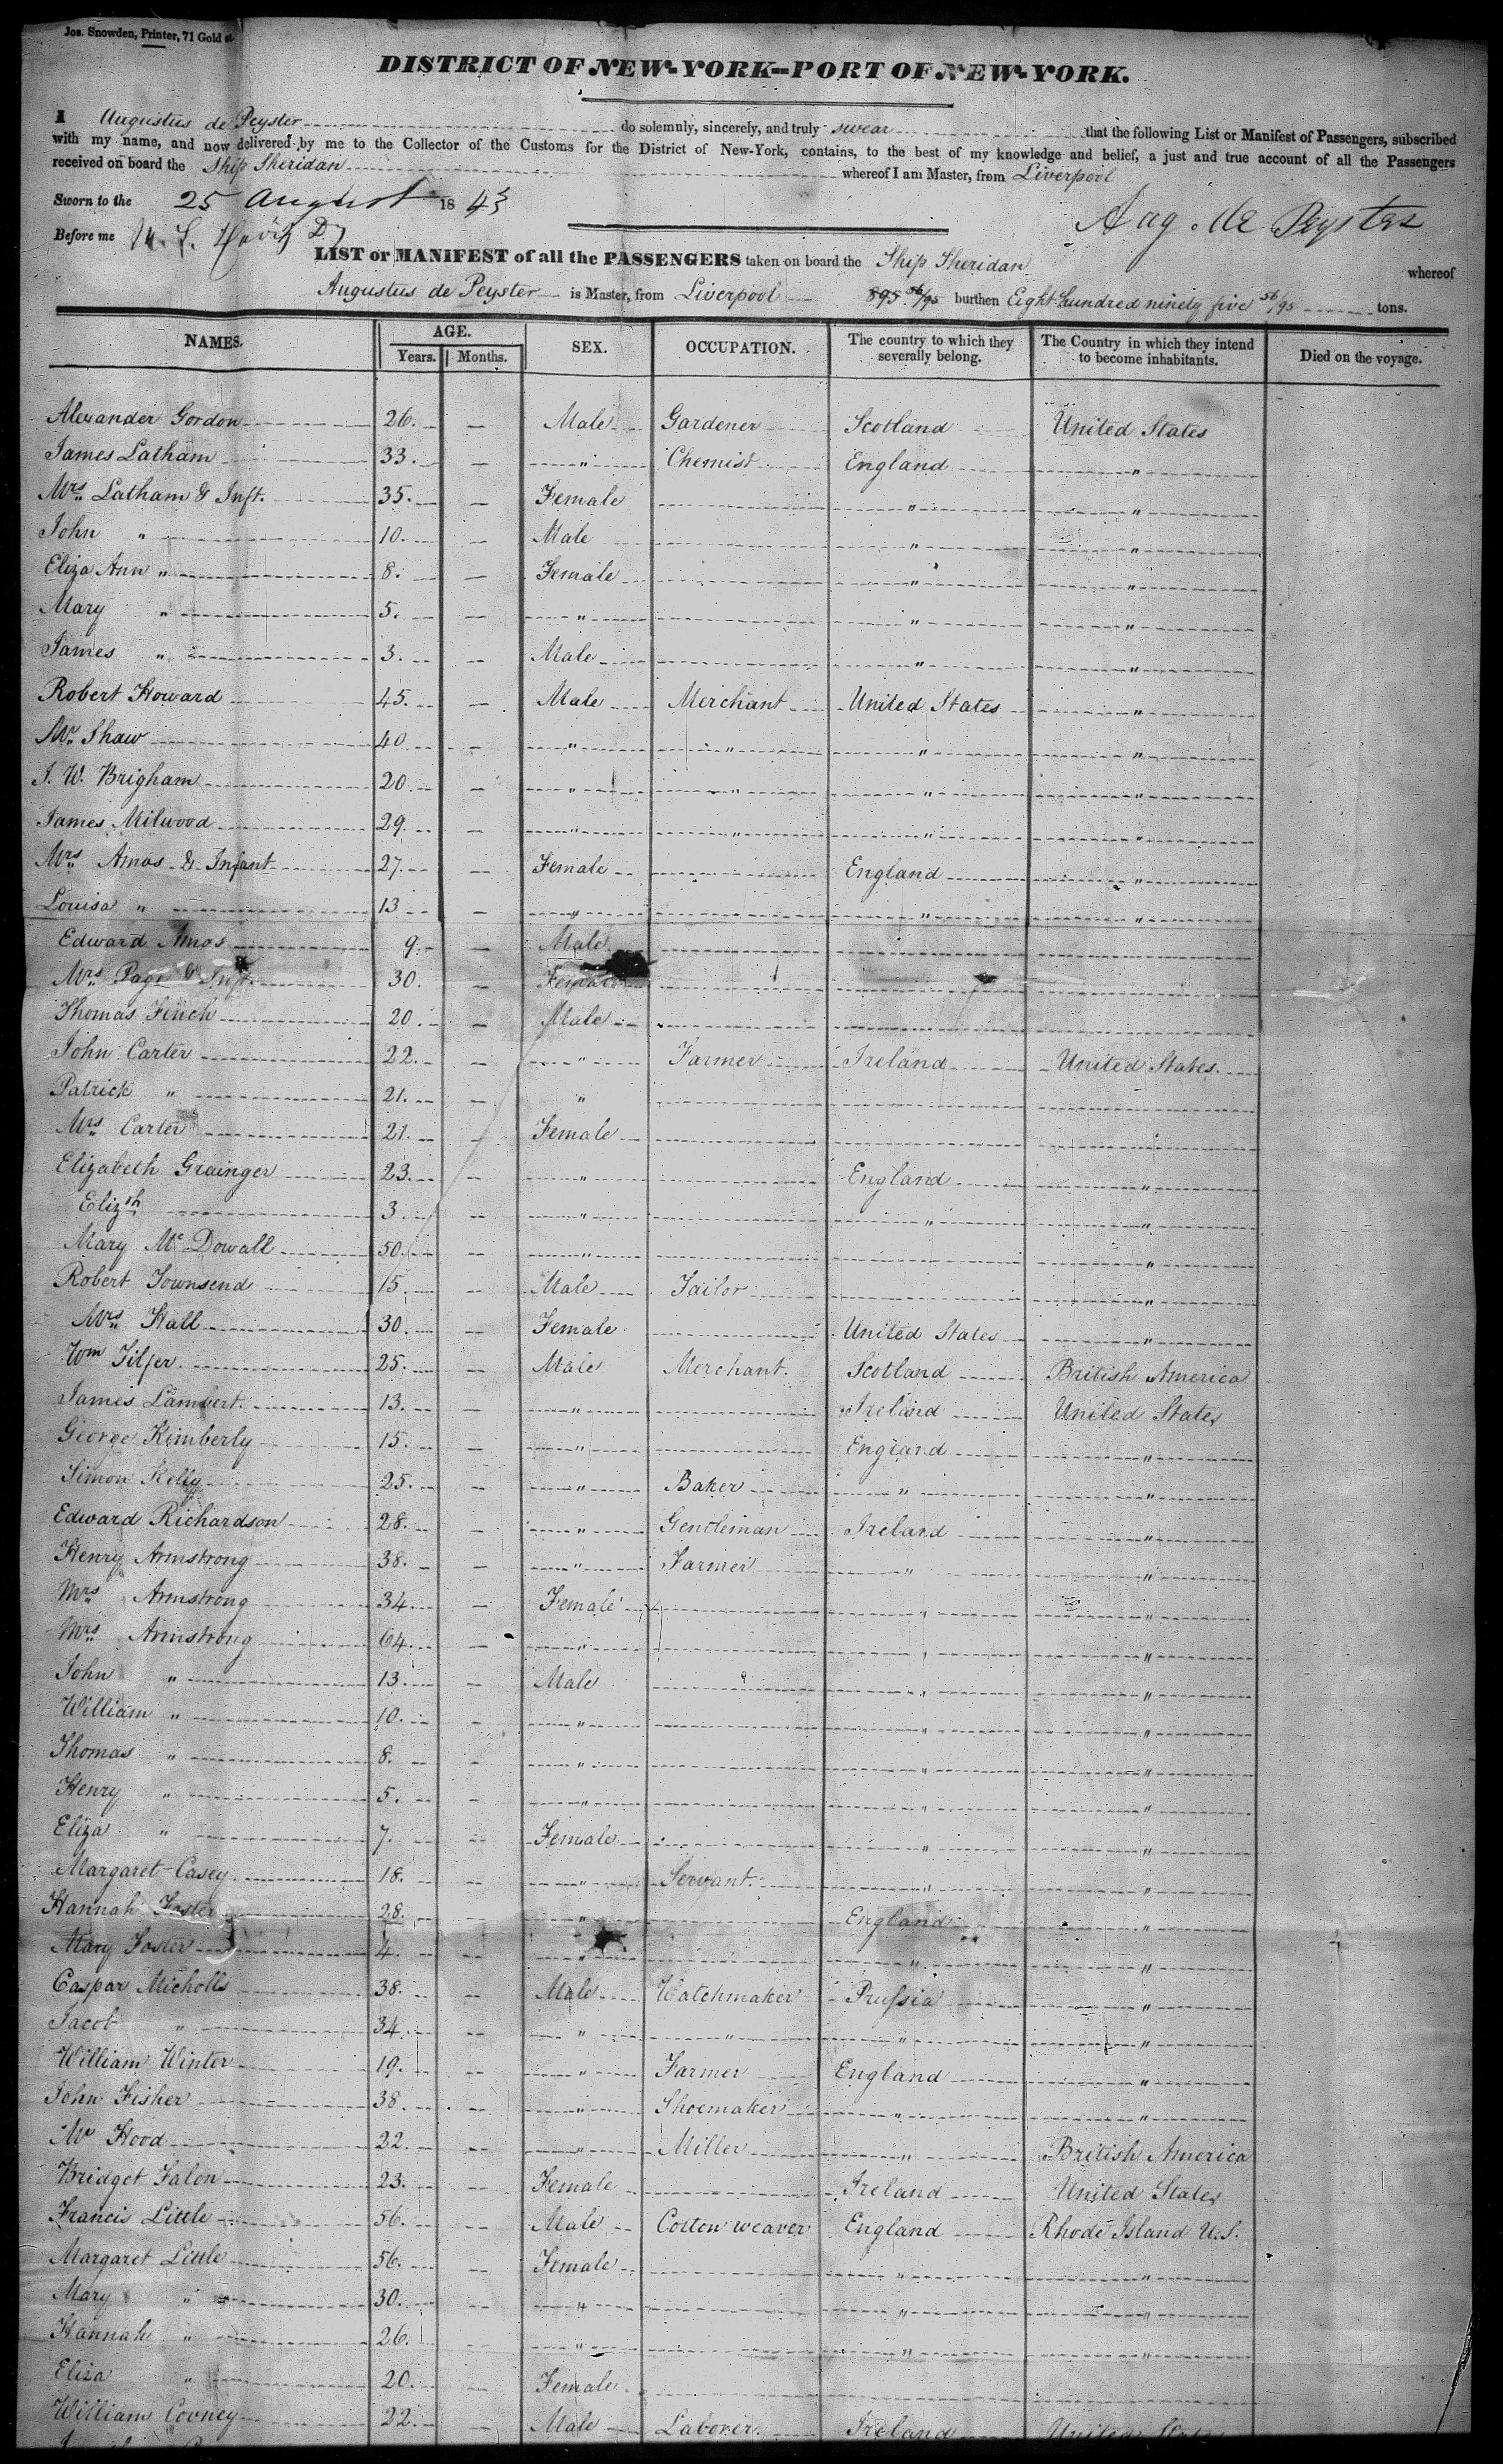 Jos. Snowden, Printer, 71 Gold st
DISTRICT OF NEW-YORK--PORT OF NEW-YORK.
I Augustus de Peyster do solemnly, sincerely, and truly swear that the following List or Manifest of Passengers, subscribed
with my name, and now delivered by me to the Collector of the Customs for the District of New-York, contains, to the best of my knowledge and belief, a just and true account of all the Passengers
received on board the Ship Sheridan whereof I am Master, from Liverpool
Sworn to the 25 August 1843
Aug. de Peyster
Before me
LIST or MANIFEST of all the PASSENGERS taken on board the Ship Sheridan whereof
Augustus de Peyster is Master, from Liverpool 895 56/95 burthen Eight hundred ninety five 56/95 tons.
NAMES. AGE. Years. Months. SEX. OCCUPATION. The country to which they severally belong. The Country in which they intend to become inhabitants. Died on the voyage.
Alexander Gordon 26. — Male Gardener Scotland United States
James Latham 33. — " Chemist England "
Mrs. Latham & Inft. 35. — Female " "
John " 10. — Male " "
Eliza Ann " 8. — Female " "
Mary " 5. — " " "
James " 3. — Male " "
Robert Howard 45. — Male Merchant United States "
Mr. Shaw 40 — " " " "
J. W. Brigham 20 — " " " "
James Milwood 29. — " " " "
Mrs. Amos & Infant 27. — Female England "
Louisa " 13 — " " "
Edward Amos 9. — Male
Mrs. Page & Inft. 30. — Female
Thomas Finch 20. — Male
John Carter 22. — " Farmer Ireland United States.
Patrick " 21. — "
Mrs. Carter 21. — Female "
Elizabeth Grainger 23. — " England "
Elizth 3 — " " "
Mary Mc Dowall 50. — " "
Robert Townsend 15 — Male Tailor "
Mrs. Hall 30. — Female United States "
Wm Tilfer. 25. — Male Merchant. Scotland British America
James Lambert. 13. — " Ireland United States
George Kimberly 15. — " England "
Simon Kelly 25. — " Baker " "
Edward Richardson 28. — " Gentleman Ireland "
Henry Armstrong 38. — " Farmer " "
Mrs. Armstrong 34. — Female " "
Mrs. Armstrong 64. — " " "
John " 13. — Male " "
William " 10. — " " "
Thomas " 8. — " " "
Henry " 5. — " " "
Eliza " 7. — Female " "
Margaret Casey 18. — " Servant " "
Hannah Foster 28. — " England "
Mary Foster 4. — " " "
Caspar Micholls 38. — Male Watchmaker Prussia "
Jacob " 34. — " " " "
William Winter 19. — " Farmer England "
John Fisher 38. — " Shoemaker " "
Mr Hood 22. — " Miller " British America
Bridget Falon 23. — Female Ireland United States
Francis Little 56. — Male Cotton weaver England Rhode Island U.S.
Margaret Little 56. — Female " "
Mary " 30. — " " "
Hannah " 26. — " " "
Eliza " 20. — Female
William Covney 22. — Male Laborer. Ireland United States